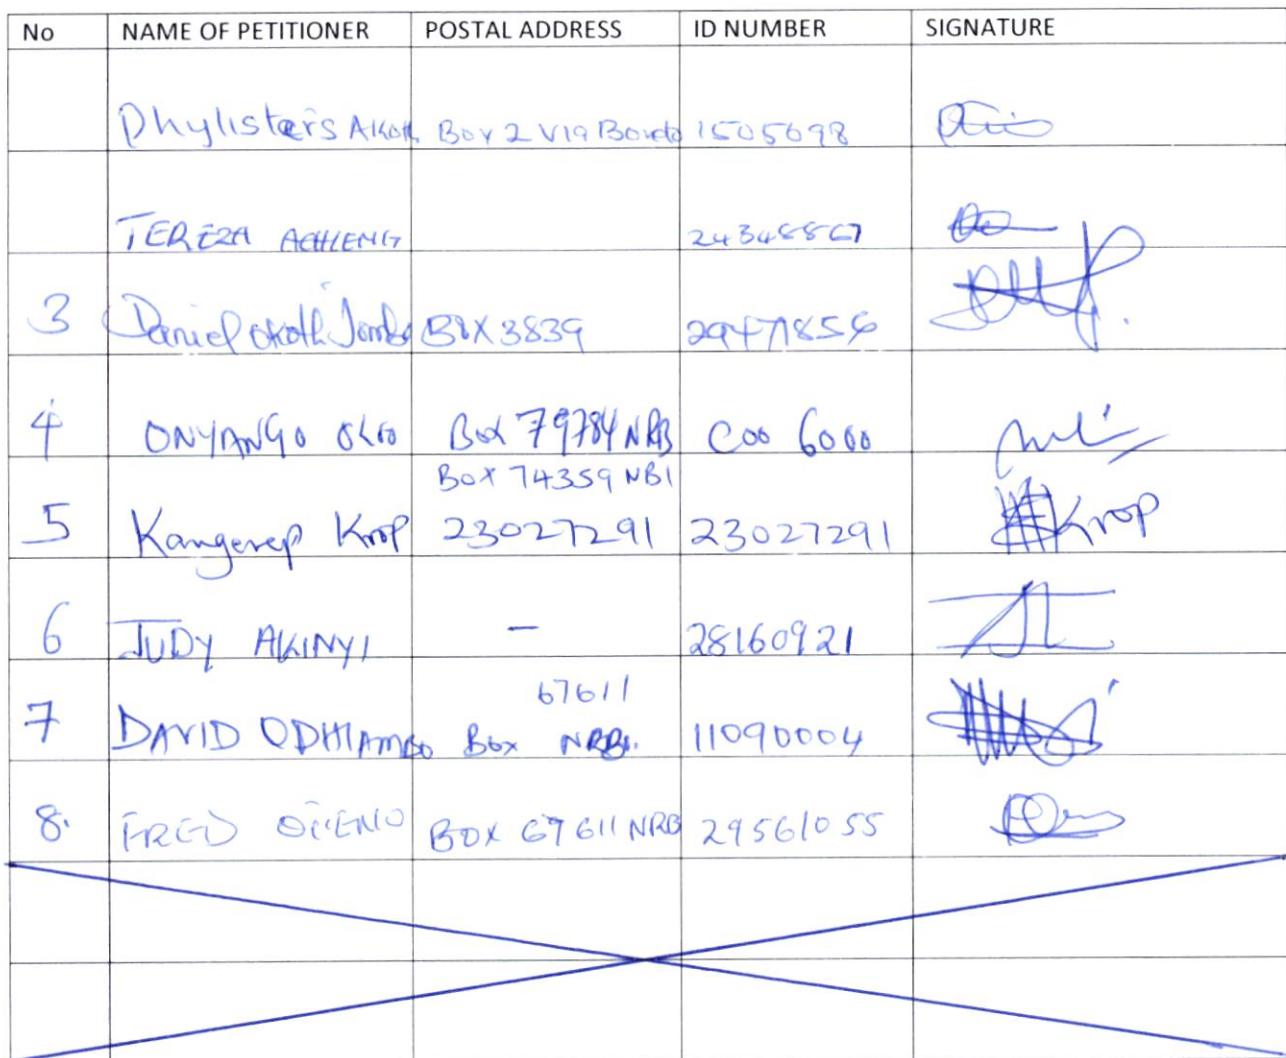 No NAME OF PETITIONER POSTAL ADDRESS ID NUMBER SIGNATURE
Phylisters Akoth Box 2 Via Bondo 1505698
TEREZA ACHIENG 24348867
3 Daniel Okoth Jombo BOX 3839
4 ONYANGO Box 79784 NRB C00 6000
Box 74359 NBI
5 Kangerep Krop 23027291 23027291 Krop
6 JUDY AKINYI – 28160921
67611
7 DAVID ODHIAMBO Box NRBI. 11090004
8. FRED OTIENO BOX 67611 NRB 29561055